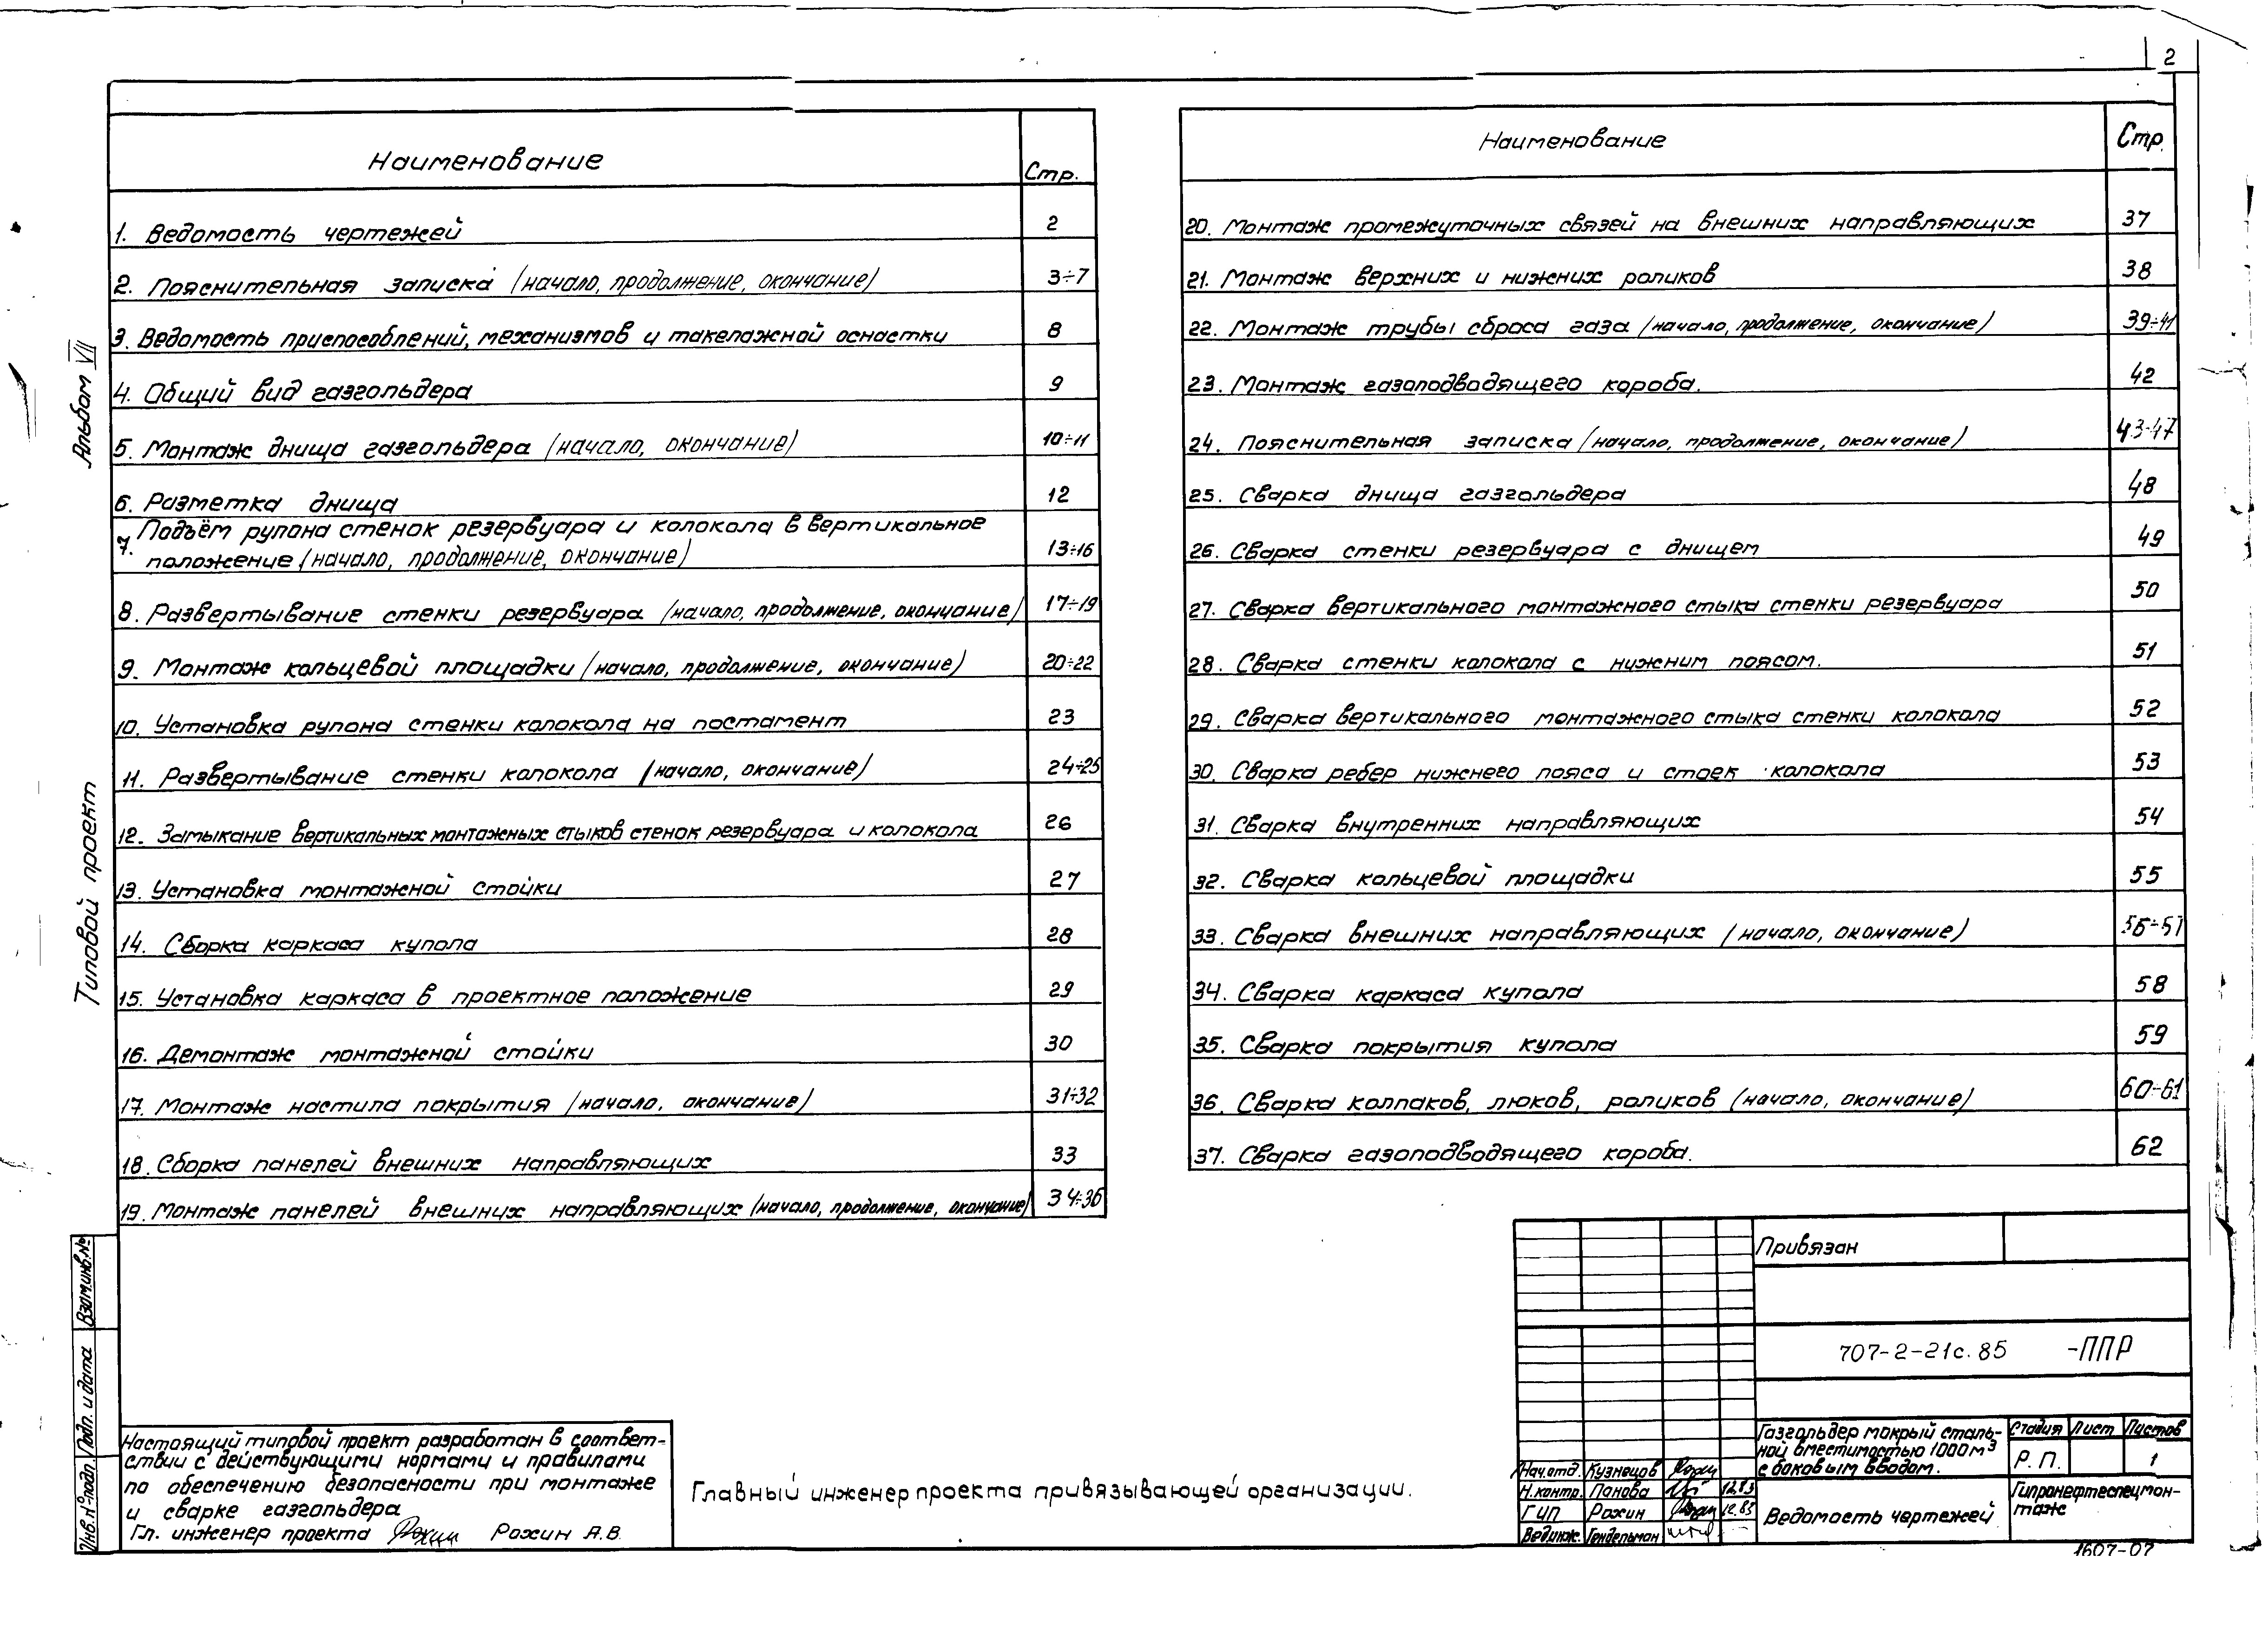 2
Наименование Стр.
1. Ведомость чертежей 2
2. Пояснительная записка (начало, продолжение, окончание) 3÷7
3. Ведомость приспособлений, механизмов и такелажной оснастки 8
4. Общий вид газгольдера 9
5. Монтаж днища газгольдера (начало, окончание) 10÷11
6. Разметка днища 12
7. Подъём рулона стенок резервуара и колокола в вертикальное
положение (начало, продолжение, окончание) 13÷16
8. Развертывание стенки резервуара (начало, продолжение, окончание) 17÷19
9. Монтаж кольцевой площадки (начало, продолжение, окончание) 20÷22
10. Установка рулона стенки колокола на постамент 23
11. Развертывание стенки колокола (начало, окончание) 24÷25
12. Замыкание вертикальных монтажных стыков стенок резервуара и колокола 26
13. Установка монтажной стойки 27
14. Сборка каркаса купола 28
15. Установка каркаса в проектное положение 29
16. Демонтаж монтажной стойки 30
17. Монтаж настила покрытия (начало, окончание) 31÷32
18. Сборка панелей внешних направляющих 33
19. Монтаж панелей внешних направляющих (начало, продолжение, окончание) 34÷36
Наименование Стр.
20. Монтаж промежуточных связей на внешних направляющих 37
21. Монтаж верхних и нижних роликов 38
22. Монтаж трубы сброса газа (начало, продолжение, окончание) 39÷41
23. Монтаж газоподводящего короба. 42
24. Пояснительная записка (начало, продолжение, окончание) 43-47
25. Сварка днища газгольдера 48
26. Сварка стенки резервуара с днищем 49
27. Сварка вертикального монтажного стыка стенки резервуара 50
28. Сварка стенки колокола с нижним поясом. 51
29. Сварка вертикального монтажного стыка стенки колокола 52
30. Сварка ребер нижнего пояса и стоек колокола 53
31. Сварка внутренних направляющих 54
32. Сварка кольцевой площадки 55
33. Сварка внешних направляющих (начало, окончание) 56÷57
34. Сварка каркаса купола 58
35. Сварка покрытия купола 59
36. Сварка колпаков, люков, роликов (начало, окончание) 60÷61
37. Сварка газоподводящего короба. 62
Альбом VII
Типовой проект
Взам.инв.№
Подп. и дата
Инв.№подл.
Настоящий типовой проект разработан в соответ-
ствии с действующими нормами и правилами
по обеспечению безопасности при монтаже
и сварке газгольдера
Гл. инженер проекта Рохин А.В.
Главный инженер проекта привязывающей организации.
Привязан
707-2-21с.85 -ППР
Газгольдер мокрый сталь-
ной вместимостью 1000 м³
с боковым вводом.
Стадия Лист Листов
Р.П. 1
Нач.отд. Кузнецов
Н.контр. Панова 12.83
ГИП Рохин 12.83
Вед.инж. Гендельман
Ведомость чертежей
Гипронефтеспецмон-
таж
1607-07